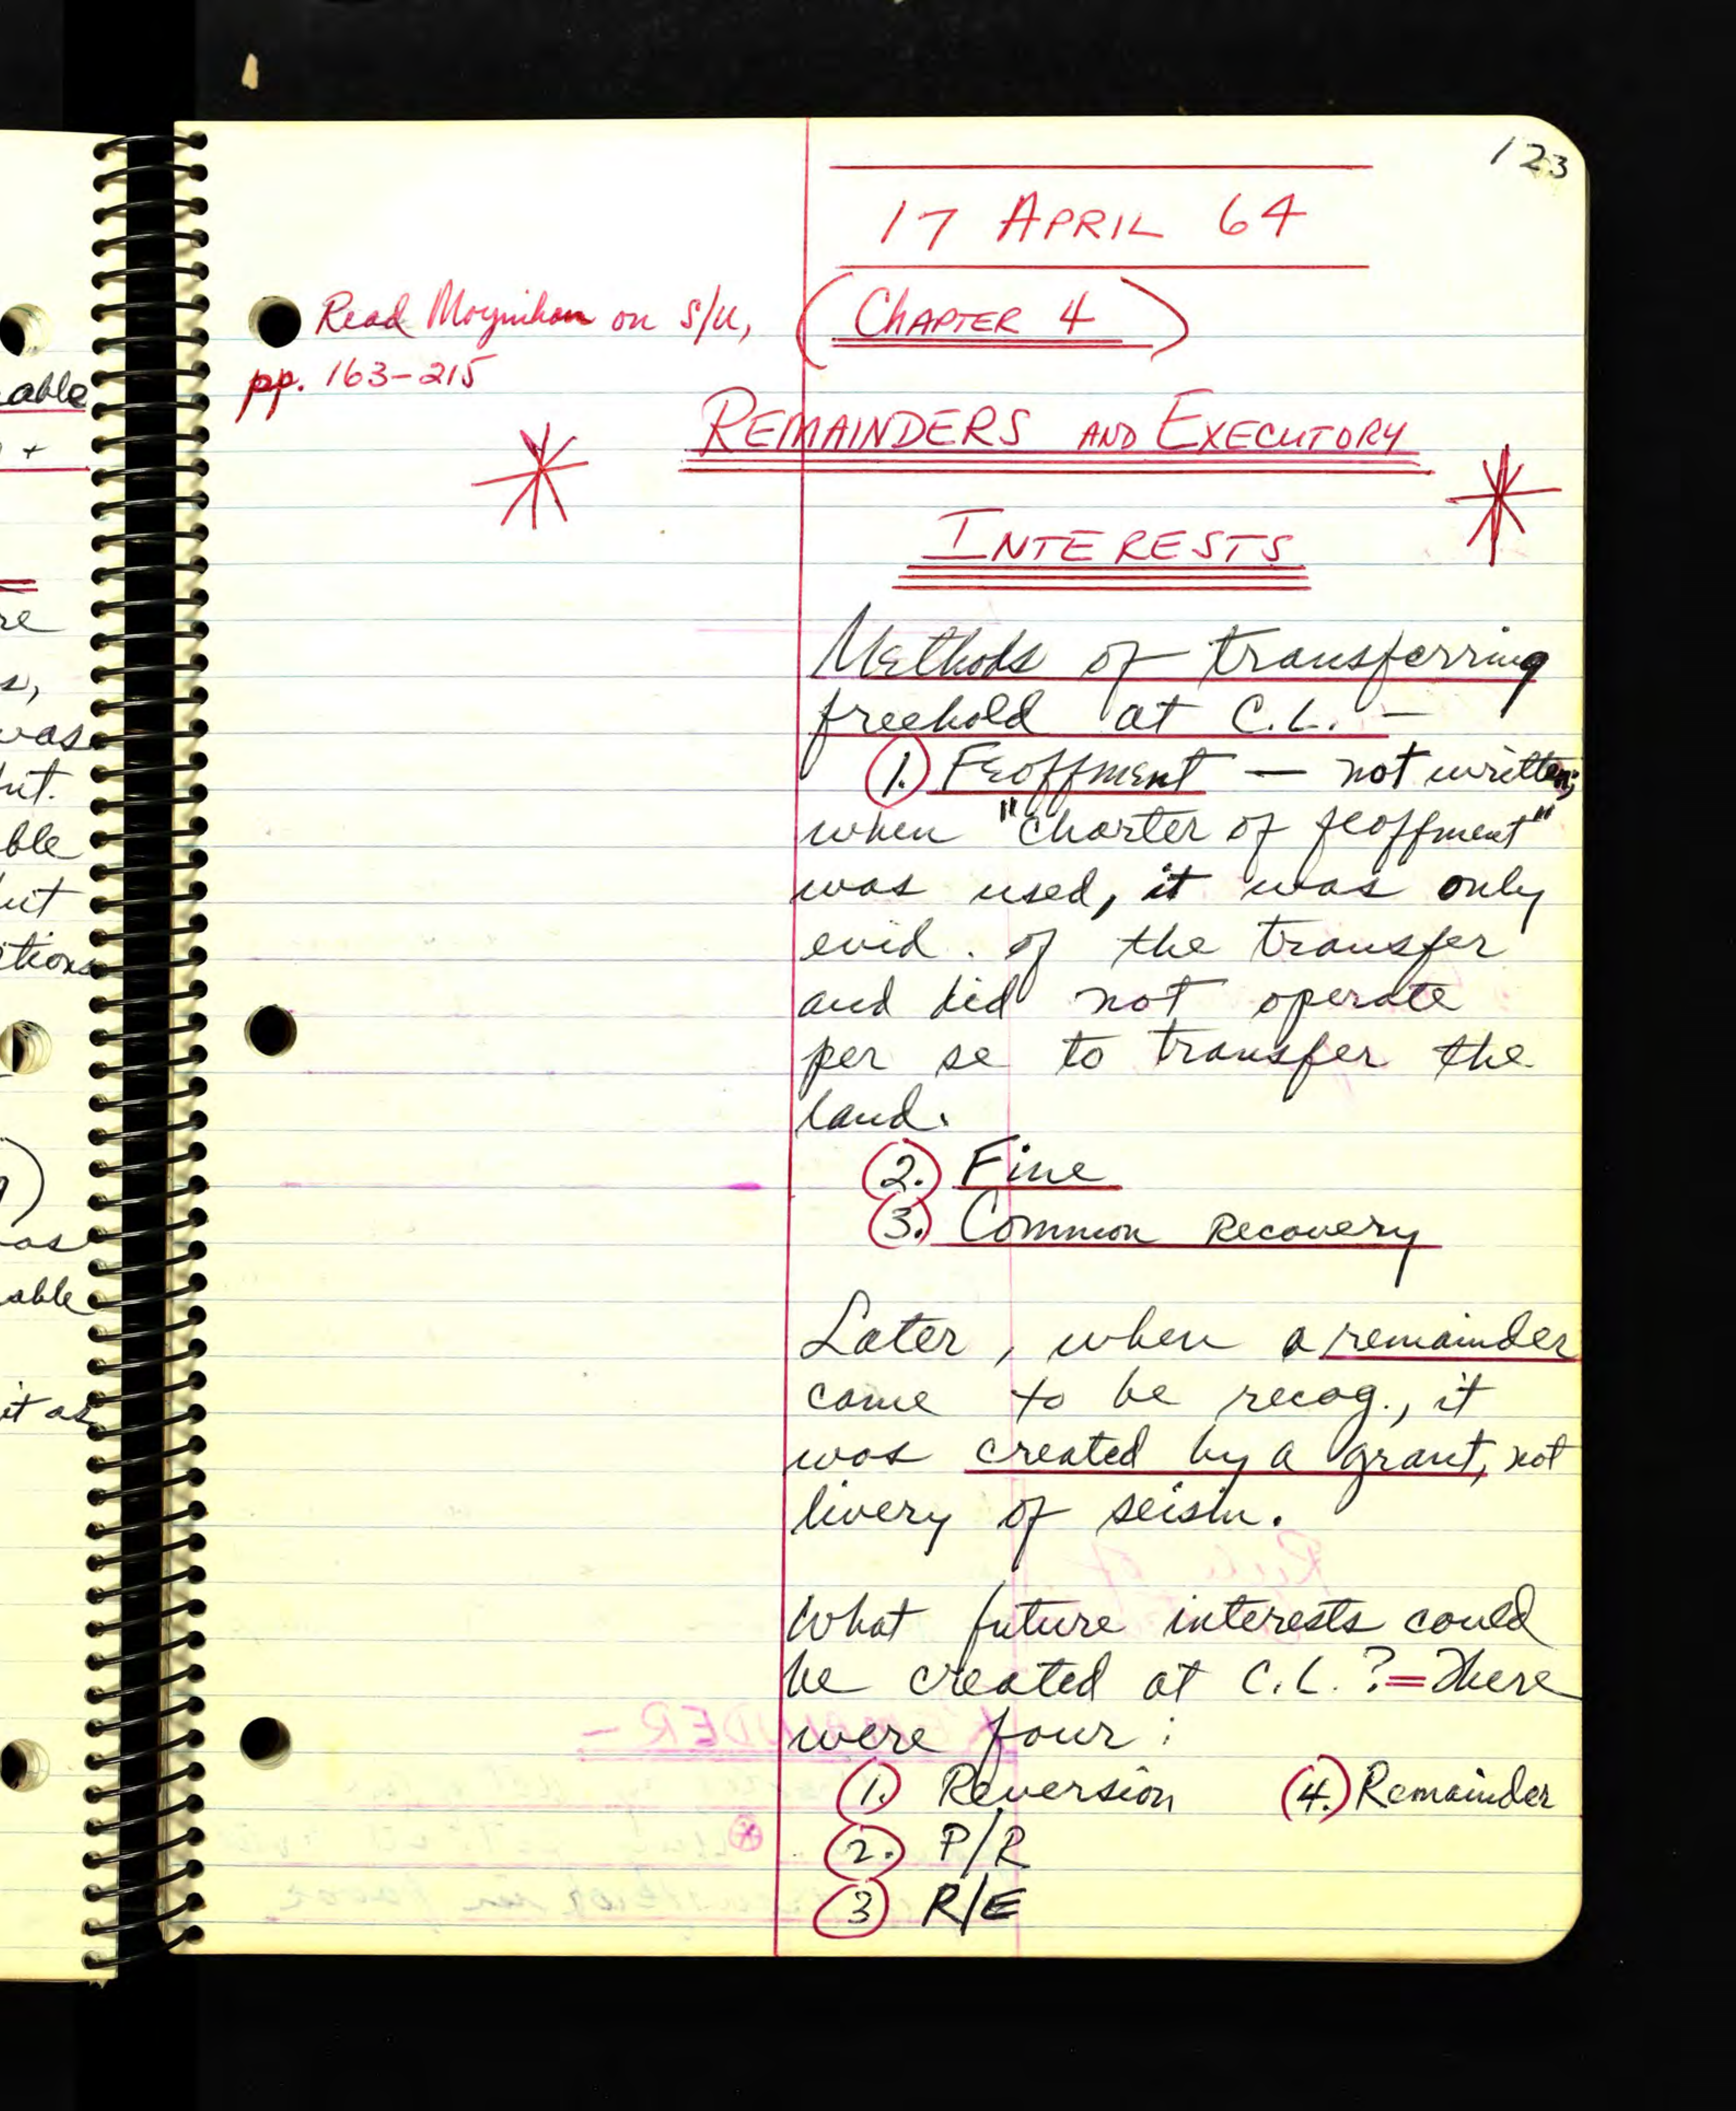 123
17 APRIL 64
Read Moynihan on S/U,
pp. 163-215
(CHAPTER 4)
REMAINDERS AND EXECUTORY
INTERESTS
Methods of transferring
freehold at C.L. —
1. Feoffment — not written;
when "charter of feoffment"
was used, it was only
evid. of the transfer
and did not operate
per se to transfer the
land.
2. Fine
3. Common Recovery
Later, when a remainder
came to be recog., it
was created by a grant, not
livery of seisin.
What future interests could
be created at C.L.? = There
were four:
1. Reversion (4.) Remainder
2. P/R
3 R/E
able
+
re
s,
was
ble
tions
as
able
it as